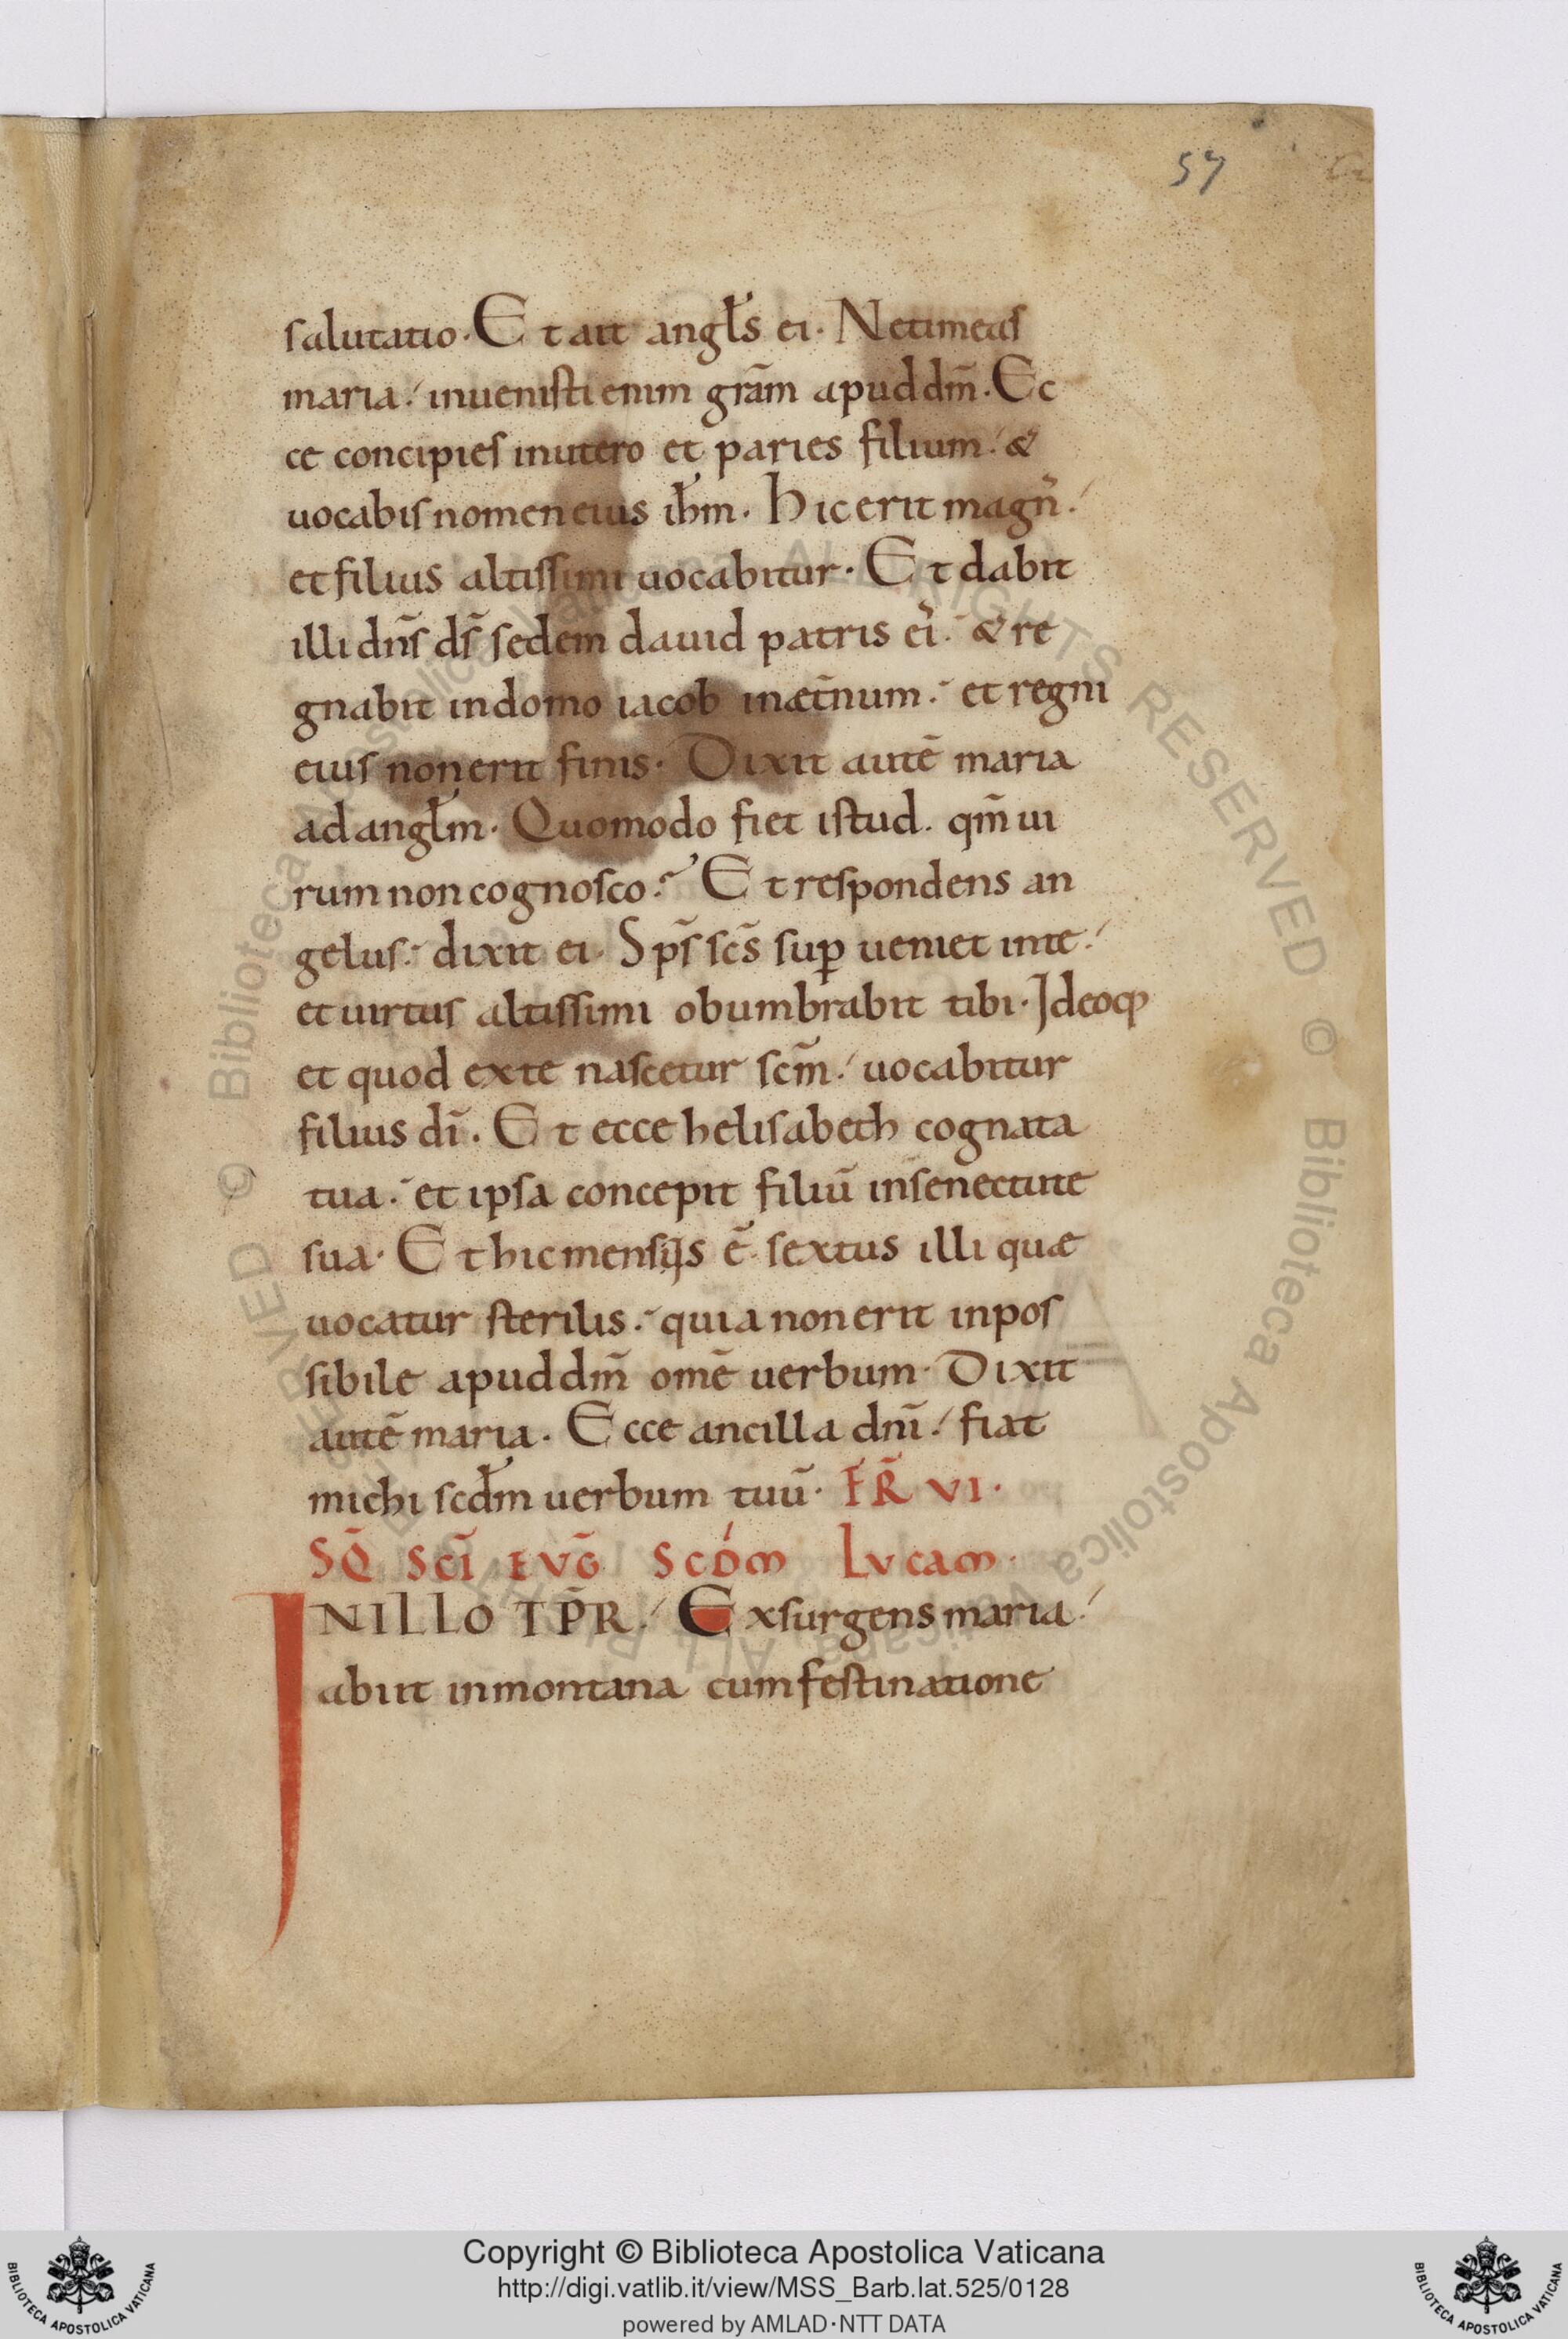 57
salutatio. Et ait angl̄s ei. Netimeas
maria. inuenisti enim grām apud dm̄. Ec
ce concipies inutero et paries filium. &
uocabis nomen eius ih̄m. Hic erit magn᾽.
et filius altissimi uocabitur. Et dabit
illi dn̄s ds̄ sedem dauid patris ei᾽. & re
gnabit indomo iacob inæt̄num. et regni
eius non erit finis. Dixit autē maria
ad angl̄m. Quomodo fiet istud. qm̄ ui
rum non cognosco? Et respondens an
gelus. dixit ei. Sps̄ scs̄ suꝑ ueniet inte.
et uirtus altissimi obumbrabit tibi. Ideoq;
et quod exte nascetur scm̄. uocabitur
filius dī. Et ecce helisabeth cognata
tua. et ipsa concepit filiū insenectute
sua. Et hic mensijs ē. sextus illi quæ
uocatur sterilis. quia non erit inpos
sibile apud dm̄ omē uerbum. Dixit
autē maria. Ecce ancilla dn̄i. fiat
michi scd̄m uerbum tuū. FR̄ VI.
SQ̄ SCĪ EVḠ SCDM LVCAM.
INILLO TP̄R. Exsurgens maria.
abiit inmontana cumfestinatione
© Biblioteca Apostolica Vaticana ALL RIGHTS RESERVED © Biblioteca Apostolica Vaticana ALL RIGHTS RESERVED
Copyright © Biblioteca Apostolica Vaticana
http://digi.vatlib.it/view/MSS_Barb.lat.525/0128
powered by AMLAD·NTT DATA
BIBLIOTECA APOSTOLICA VATICANA
BIBLIOTECA APOSTOLICA VATICANA